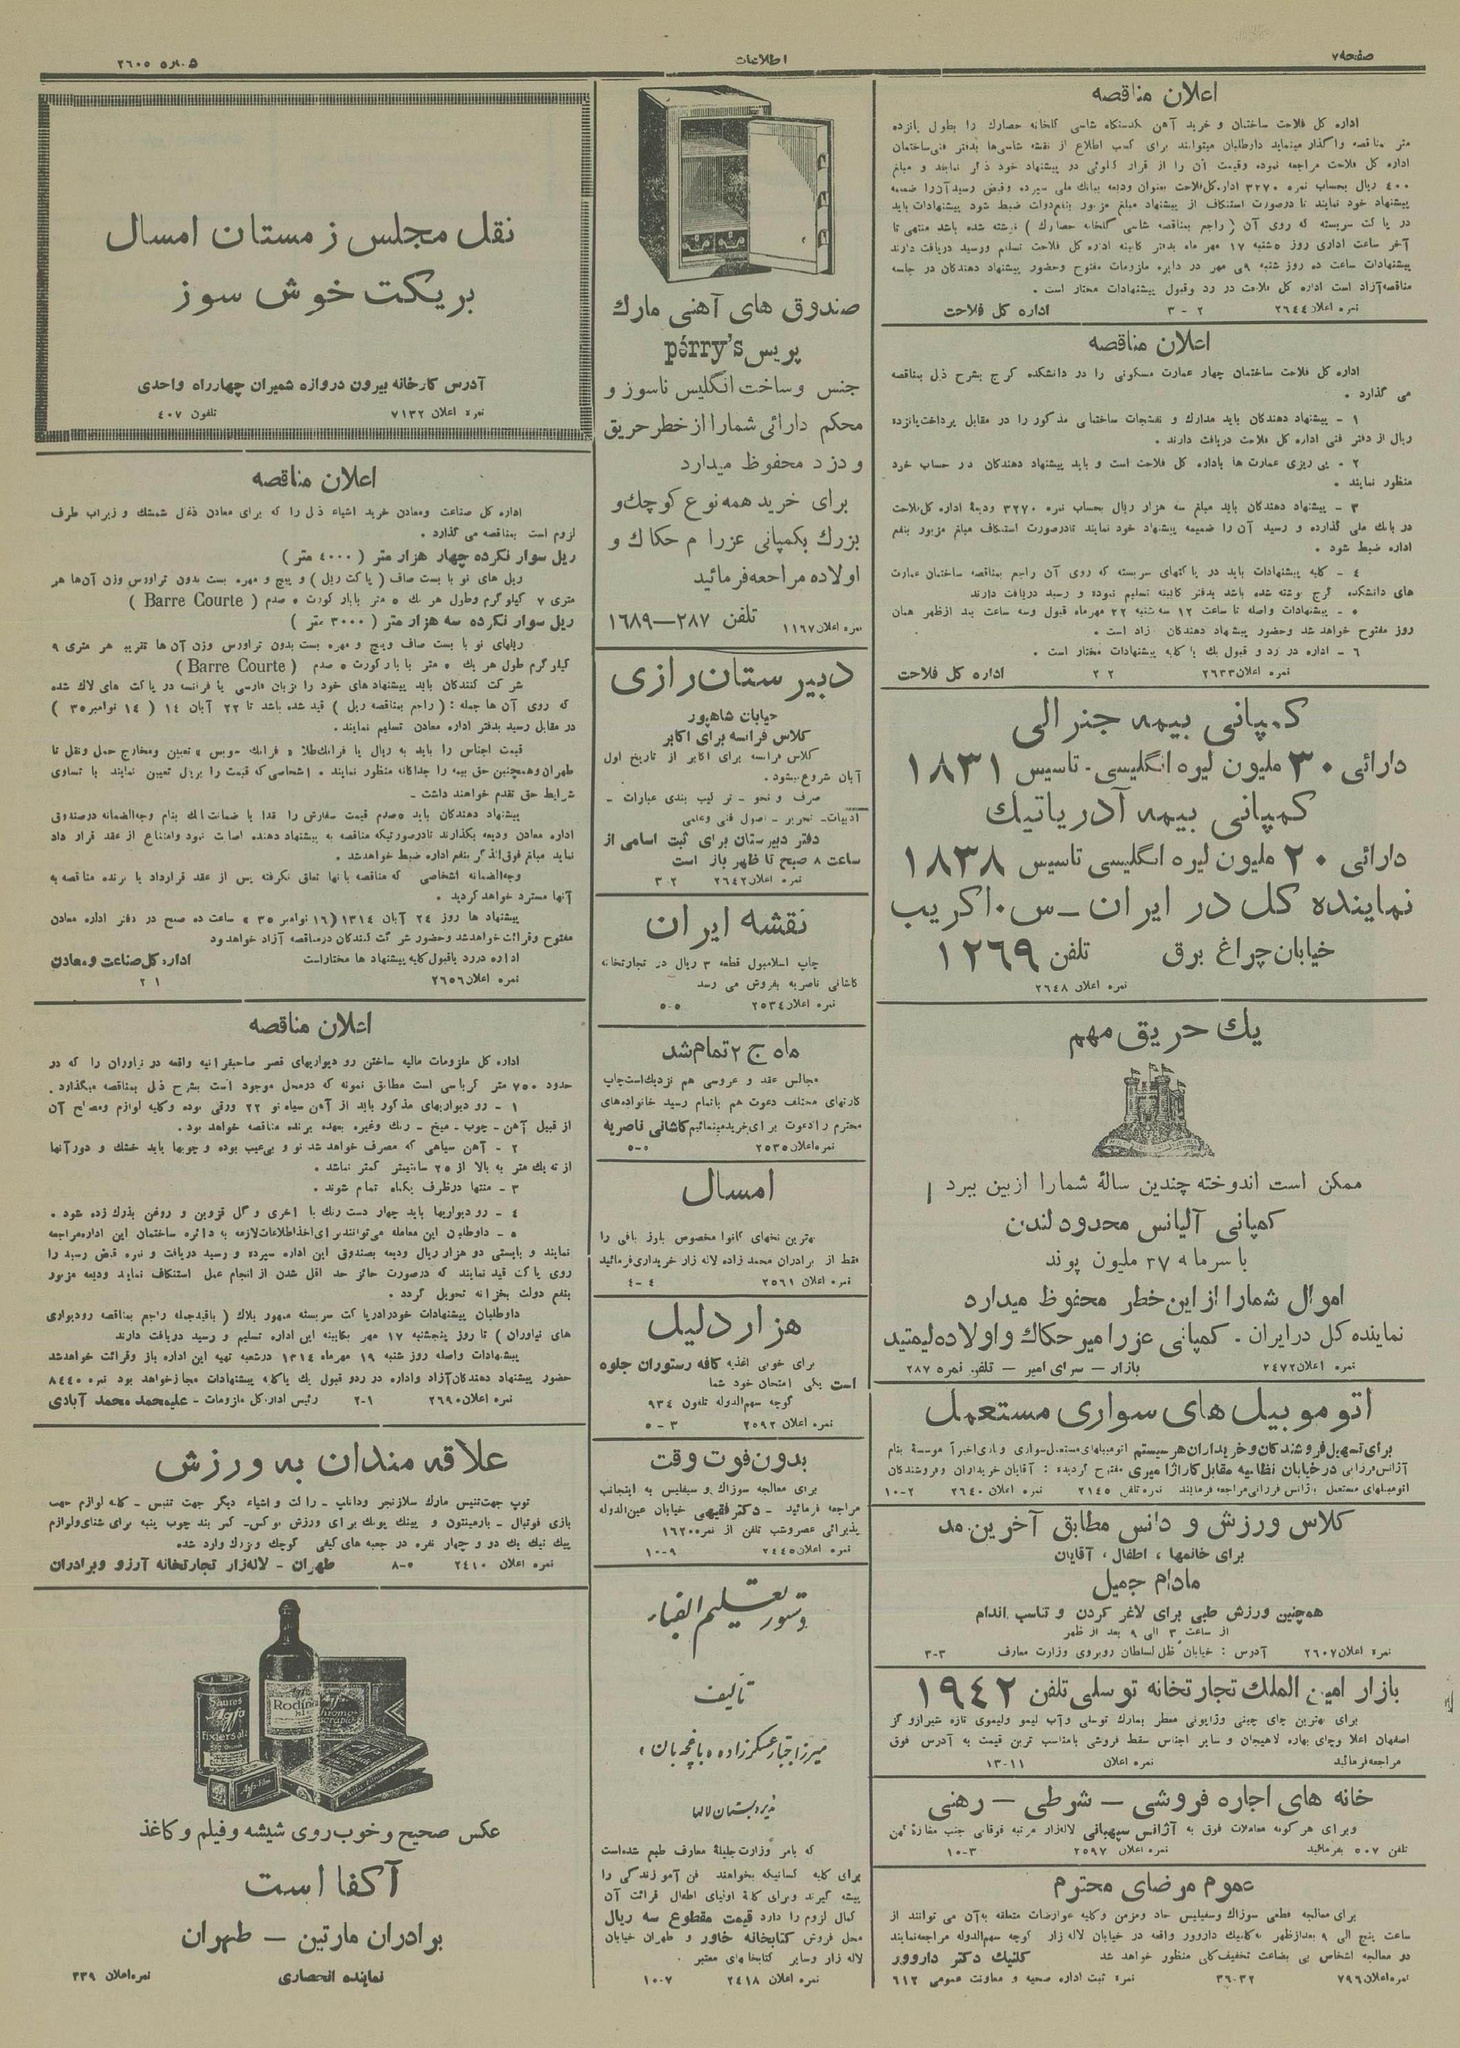 صفحه ۷
اطلاعات
شماره ۲۶۰۵
اعلان مناقصه
اداره کل فلاحت ساختمان و خرید آهن یکدستگاه شاسی گلخانه حصارك را بطول پانزده
متر مناقصه واگذار مینماید داوطلبان میتوانند برای کسب اطلاع از نقشه شاسی‌ها بدفتر فنی ساختمان
اداره کل فلاحت مراجعه نموده وقیمت آن را از قرار کیلوئی در پیشنهاد خود ذکر نمایند و مبلغ
۴۰۰ ریال بحساب نمره ۳۲۷۰ اداره کل فلاحت بعنوان ودیعه ببانك ملی سپرده وقبض رسید آن را ضمیمه
پیشنهاد خود نمایند تا درصورت استنکاف از پیشنهاد مبلغ مزبور بنفع دولت ضبط شود پیشنهادات باید
در پاکت سربسته که روی آن ( راجع بمناقصه شاسی گلخانه حصارك ) نوشته شده باشد منتهی تا
آخر ساعت اداری روز ۵شنبه ۱۷ مهر ماه بدفتر کابینه اداره کل فلاحت تسلیم ورسید دریافت دارند
پیشنهادات ساعت ده روز شنبه ۱۹ مهر در دایره ملزومات مفتوح وحضور پیشنهاد دهندگان در جلسه
مناقصه آزاد است اداره کل فلاحت در رد وقبول پیشنهادات مختار است .
نمره اعلان ۲۶۴۴ ۲ - ۳ اداره کل فلاحت
اعلان مناقصه
اداره کل فلاحت ساختمان چهار عمارت مسکونی را در دانشکده کرج بشرح ذیل بمناقصه
می گذارد .
۱ - پیشنهاد دهندگان باید مدارك و نقشجات ساختمانی مذکور را در مقابل پرداخت پانزده
ریال از دفتر فنی اداره کل فلاحت دریافت دارند .
۲ - پی ریزی عمارت ها باداره کل فلاحت است و باید پیشنهاد دهندگان در حساب خود
منظور نمایند .
۳ - پیشنهاد دهندگان باید مبلغ سه هزار ریال بحساب نمره ۳۲۷۰ ودیعهٔ اداره کل فلاحت
در بانك ملی گذارده و رسید آن را ضمیمه پیشنهاد خود نمایند تادرصورت استنکاف مبلغ مزبور بنفع
اداره ضبط شود .
۴ - کلیه پیشنهادات باید در پاکتهای سربسته که روی آن راجع بمناقصه ساختمان عمارت
های دانشکده کرج نوشته شده باشد بدفتر کابینه تسلیم نموده و رسید دریافت دارند
۵ - پیشنهادات واصله تا ساعت ۱۲ سه شنبه ۲۲ مهرماه قبول وسه ساعت بعد ازظهر همان
روز مفتوح خواهد شد وحضور پیشنهاد دهندگان آزاد است .
۶ - اداره در رد و قبول یك یا کلیه پیشنهادات مختار است .
نمره اعلان ۲۶۳۳ ۲ ۲ اداره کل فلاحت
کمپانی بیمه جنرالی
دارائی ۳۰ ملیون لیره انگلیسی - تاسیس ۱۸۳۱
کمپانی بیمه آدریاتیك
دارائی ۲۰ ملیون لیره انگلیسی تاسیس ۱۸۳۸
نماینده کل در ایران – س ۰ اکریب
خیابان چراغ برق تلفن ۱۲۶۹
نمره اعلان ۲۶۴۸
یك حریق مهم
ممکن است اندوخته چندین سالهٔ شمارا ازبین ببرد !
کمپانی آلیانس محدود لندن
باسرمایه ۲۷ ملیون پوند
اموال شمارا از این خطر محفوظ میدارد
نماینده کل در ایران - کمپانی عزرا میرحکاك واولاده لیمتید
نمره اعلان ۲۴۷۲ بازار – سرای امیر – تلفن نمره ۲۸۷
اتوموبیل های سواری مستعمل
برای تسهیل فروشندگان وخریداران هرسیستم اتومبیلهای مستعمل سواری و باری اخیراً موسسهٔ بنام
آژانس فرزانی در خیابان نظامیه مقابل کاراژ امیری مفتوح گردیده : آقایان خریداران وفروشندگان
اتومبیلهای مستعمل بآژانس فرزانی مراجعه فرمایند نمره تلفن ۲۱۴۵ نمره اعلان ۲۶۴۰ ۲-۱۰
کلاس ورزش و دانس مطابق آخرین مد
برای خانمها ، اطفال ، آقایان
مادام جمیل
همچنین ورزش طبی برای لاغر کردن و تناسب اندام
از ساعت ۳ الی ۹ بعد از ظهر
نمره اعلان ۲۶۰۷ آدرس : خیابان ظل السلطان روبروی وزارت معارف ۳-۳
بازار امین الملك تجارتخانه توسلی تلفن ۱۹۴۲
برای بهترین چای چینی وژاپونی معطر بمارك توسلی وآب لیمو ولیموی تازه شیرازو گز
اصفهان اعلا وچای بهاره لاهیجان و سایر اجناس سقط فروشی بامناسب ترین قیمت به آدرس فوق
مراجعه فرمائید نمره اعلان ۱۱-۱۳
خانه های اجاره فروشی – شرطی – رهنی
وبرای هرگونه معاملات فوق به آژانس سپهبانی لاله‌زار مرتبه فوقانی جنب مغازه کهن
تلفن ۵۰۷ بفرمائید نمره اعلان ۲۵۹۷ ۳-۱۰
عموم مرضای محترم
برای معالجه قطعی سوزاك وسفیلیس حاد ومزمن وکلیه عوارضات متعلقه به‌آن می توانند از
ساعت پنج الی ۹ بعدازظهر به‌کلینیك داروور واقعه در خیابان لاله زار کوچه سهم‌الدوله مراجعه‌نمایند
در معالجه اشخاص بی بضاعت تخفیف کلی منظور خواهد شد کلنیك دکتر داروور
نمره اعلان ۷۹۶ ۳۲-۳۶ نمره ثبت اداره صحیه و معاونت عمومی ۶۱۲
صندوق های آهنی مارك
پریس pérry's
جنس وساخت انگلیس ناسوز و
محکم دارائی شمارا از خطر حریق
و دزد محفوظ میدارد
برای خرید همه نوع کوچك و
بزرك بکمپانی عزرا م حکاك و
اولاده مراجعه فرمائید
نمره اعلان ۱۱۶۷ تلفن ۲۸۷–۱۶۸۹
دبیرستان رازی
خیابان شاهپور
کلاس فرانسه برای اکابر
کلاس فرانسه برای اکابر از تاریخ اول
آبان شروع میشود.
صرف و نحو - ترکیب بندی عبارات -
ادبیات - تحریر - اصول فنی وعلمی
دفتر دبیرستان برای ثبت اسامی از
ساعت ۸ صبح تا ظهر باز است
نمره اعلان ۲۶۴۲ ۲-۳
نقشه ایران
چاپ اسلامبول قطعه ۳ ریال در تجارتخانه
کاشانی ناصریه بفروش می رسد
نمره اعلان ۲۵۳۴ ۵-۵
ماه ج ۲ تمام شد
مجالس عقد و عروسی هم نزدیك‌است‌چاپ
کارتهای مختلف دعوت هم باتمام رسید خانواده‌های
محترم رادعوت برای‌خریدمینمائیم کاشانی ناصریه
نمره اعلان ۲۵۳۵ ۵-۵
امسال
بهترین نخهای کانوا مخصوص بلوز بافی را
فقط از برادران محمد زاده لاله زار خریداری فرمائید
نمره اعلان ۲۵۶۱ ۴-۴
هزار دلیل
برای خوبی اغذیه کافه رستوران جلوه
است یکی امتحان خود شما
کوچه سهم‌الدوله تلفون ۹۳۴
نمره اعلان ۲۵۹۲ ۳ - ۵
بدون فوت وقت
برای معالجه سوزاك و سیفلیس به اینجانب
مراجعه فرمائید - دکتر فقیهی خیابان عین‌الدوله
پذیرائی عصر وشب تلفن از نمره ۱۶۲۰۰
نمره اعلان ۲۴۴۵ ۹-۱۰
دستور تعلیم الفباء
تالیف
میرزا جبار عسکرزاده « باغچه بان »
مدیر دبستان لالها
که بامر وزارت جلیلهٔ معارف طبع شده‌است
برای کلیه کسانیکه بخواهند فن آموزندگی را
پیشه گیرند وبرای کلیهٔ اولیای اطفال قرائت آن
کمال لزوم را دارد قیمت مقطوع سه ریال
محل فروش کتابخانه خاور و طهران خیابان
لاله زار وسایر کتابخانهای معتبر .
نمره اعلان ۲۴۱۸ ۷-۱۰
نقل مجلس زمستان امسال
بریکت خوش سوز
آدرس کارخانه بیرون دروازه شمیران چهارراه واحدی
نمره اعلان ۷۱۳۲ تلفون ۴۰۷
اعلان مناقصه
اداره کل صناعت ومعادن خرید اشیاء ذیل را که برای معادن ذغال شمشك و زیراب طرف
لزوم است بمناقصه می گذارد .
ریل سوار نکرده چهار هزار متر ( ۴۰۰۰ متر )
ریل های نو با بست صاف ( پاکت ریل ) و پیچ و مهره بست بدون تراورس وزن آن‌ها هر
متری ۷ کیلو گرم وطول هر یك ۵ متر بابار کورت ۵ صدم ( Barre Courte )
ریل سوار نکرده سه هزار متر ( ۳۰۰۰ متر )
ریلهای نو با بست صاف وپیچ و مهره بست بدون تراورس وزن آن ها تقریباً هر متری ۹
کیلو گرم طول هر یك ۵ متر با بارکورت ۵ صدم ( Barre Courte )
شرکت کنندگان باید پیشنهاد های خود را بزبان فارسی یا فرانسه در پاکت های لاك شده
که روی آن ها جمله : ( راجع بمناقصه ریل ) قید شده باشد تا ۲۲ آبان ۱۴ ( ۱۴ نوامبر ۳۵ )
در مقابل رسید بدفتر اداره معادن تسلیم نمایند.
قیمت اجناس را باید به ریال یا فرانك‌طلا « فرانك سویس » تعیین ومخارج حمل ونقل تا
طهران وهمچنین حق بیمه را جداگانه منظور نمایند . اشخاصی که قیمت را بریال تعیین نمایند با تساوی
شرایط حق تقدم خواهند داشت -
پیشنهاد دهندگان باید ۵صدم قیمت سفارش را نقداً یا ضمانت بانك بنام وجه‌الضمانه درصندوق
اداره معادن ودیعه بگذارند تادرصورتیکه مناقصه به پیشنهاد دهنده اصابت نمود وامتناع از عقد قرار داد
نماید مبلغ فوق‌الذکر بنفع اداره ضبط خواهدشد .
وجه‌الضمانه اشخاصی که مناقصه بآنها تعلق نگرفته پس از عقد قرارداد با برنده مناقصه به
آنها مسترد خواهد گردید .
پیشنهاد ها روز ۲۴ آبان ۱۳۱۴ (۱۶ نوامبر ۳۵ » ساعت ده صبح در دفتر اداره معادن
مفتوح وقرائت خواهدشد وحضور شرکت کنندگان درمناقصه آزاد خواهد بود
اداره دررد یاقبول کلیه پیشنهاد ها مختاراست اداره کل صناعت ومعادن
نمره اعلان ۲۶۵۶ ۱ ۲
اعلان مناقصه
اداره کل ملزومات مالیه ساختن رو دیواریهای قصر صاحبقرانیه واقعه در نیاوران را که در
حدود ۷۵۰ متر کرباسی است مطابق نمونه که درمحل موجود است بشرح ذیل بمناقصه میگذارد.
۱ - رو دیواریهای مذکور باید از آهن سیاه نو ۲۲ ورقی بوده وکلیه لوازم ومصالح آن
از قبیل آهن - چوب - میخ - رنك وغیره بعهده برنده مناقصه خواهد بود .
۲ - آهن سیاهی که مصرف خواهد شد نو و بی‌عیب بوده و چوبها باید خشك و دورآنها
از ته یك متر به بالا از ۲۵ سانتیمتر کمتر نباشد .
۳ - منتها درظرف یکماه تمام شوند .
۴ - رو دیواریها باید چهار دست رنك با اخری و گل قزوین و روغن بذرك زده شود .
۵ - داوطلبان این معامله می‌توانند برای اخذ اطلاعات لازمه به دائره ساختمان این اداره مراجعه
نمایند و بایستی دو هزار ریال ودیعه بصندوق این اداره سپرده و رسید دریافت و نمره قبض رسید را
روی پاکت قید نمایند که درصورت حائز حد اقل شدن از انجام عمل استنکاف نمایند ودیعه مزبور
بنفع دولت بخزانه تحویل گردد .
داوطلبان پیشنهادات خودرادرپاکت سربسته ممهور بلاك ( باقیدجمله راجع بمناقصه رودیواری
های نیاوران ) تا روز پنجشنبه ۱۷ مهر بکابینه این اداره تسلیم و رسید دریافت دارند
پیشنهادات واصله روز شنبه ۱۹ مهرماه ۱۳۱۴ درشعبه تهیه این اداره باز وقرائت خواهدشد
حضور پیشنهاد دهندگان آزاد واداره در ردو قبول یك یاکلیه پیشنهادات مجازخواهد بود نمره ۸۴۴۰
نمره اعلان ۲۶۹۰ ۱-۲ رئیس اداره کل ملزومات - علیمحمد محمد آبادی
علاقه مندان به ورزش
توپ جهت‌تنیس مارك سلازنجر ودانلپ - راکت و اشیاء دیگر جهت تنیس - کلیه لوازم جهت
بازی فوتبال - بارمینتون و پینك پونك برای ورزش بوکس - کمر بند چوب پنبه برای شنای ولوازم
پیك نیك یك دو و چهار نفره در جعبه های کیفی کوچك وبزرك وارد شده
نمره اعلان ۲۴۱۰ ۵-۸ طهران - لاله‌زار تجارتخانه آرزو وبرادران
Saures
Agfa
Fixiersalz
Agfa
Rodinal
Chromo-
Isorapid
Agfa-Film
عکس صحیح وخوب روی شیشه وفیلم وکاغذ
آکفا است
برادران مارتین – طهران
نماینده انحصاری
نمره اعلان ۳۳۹